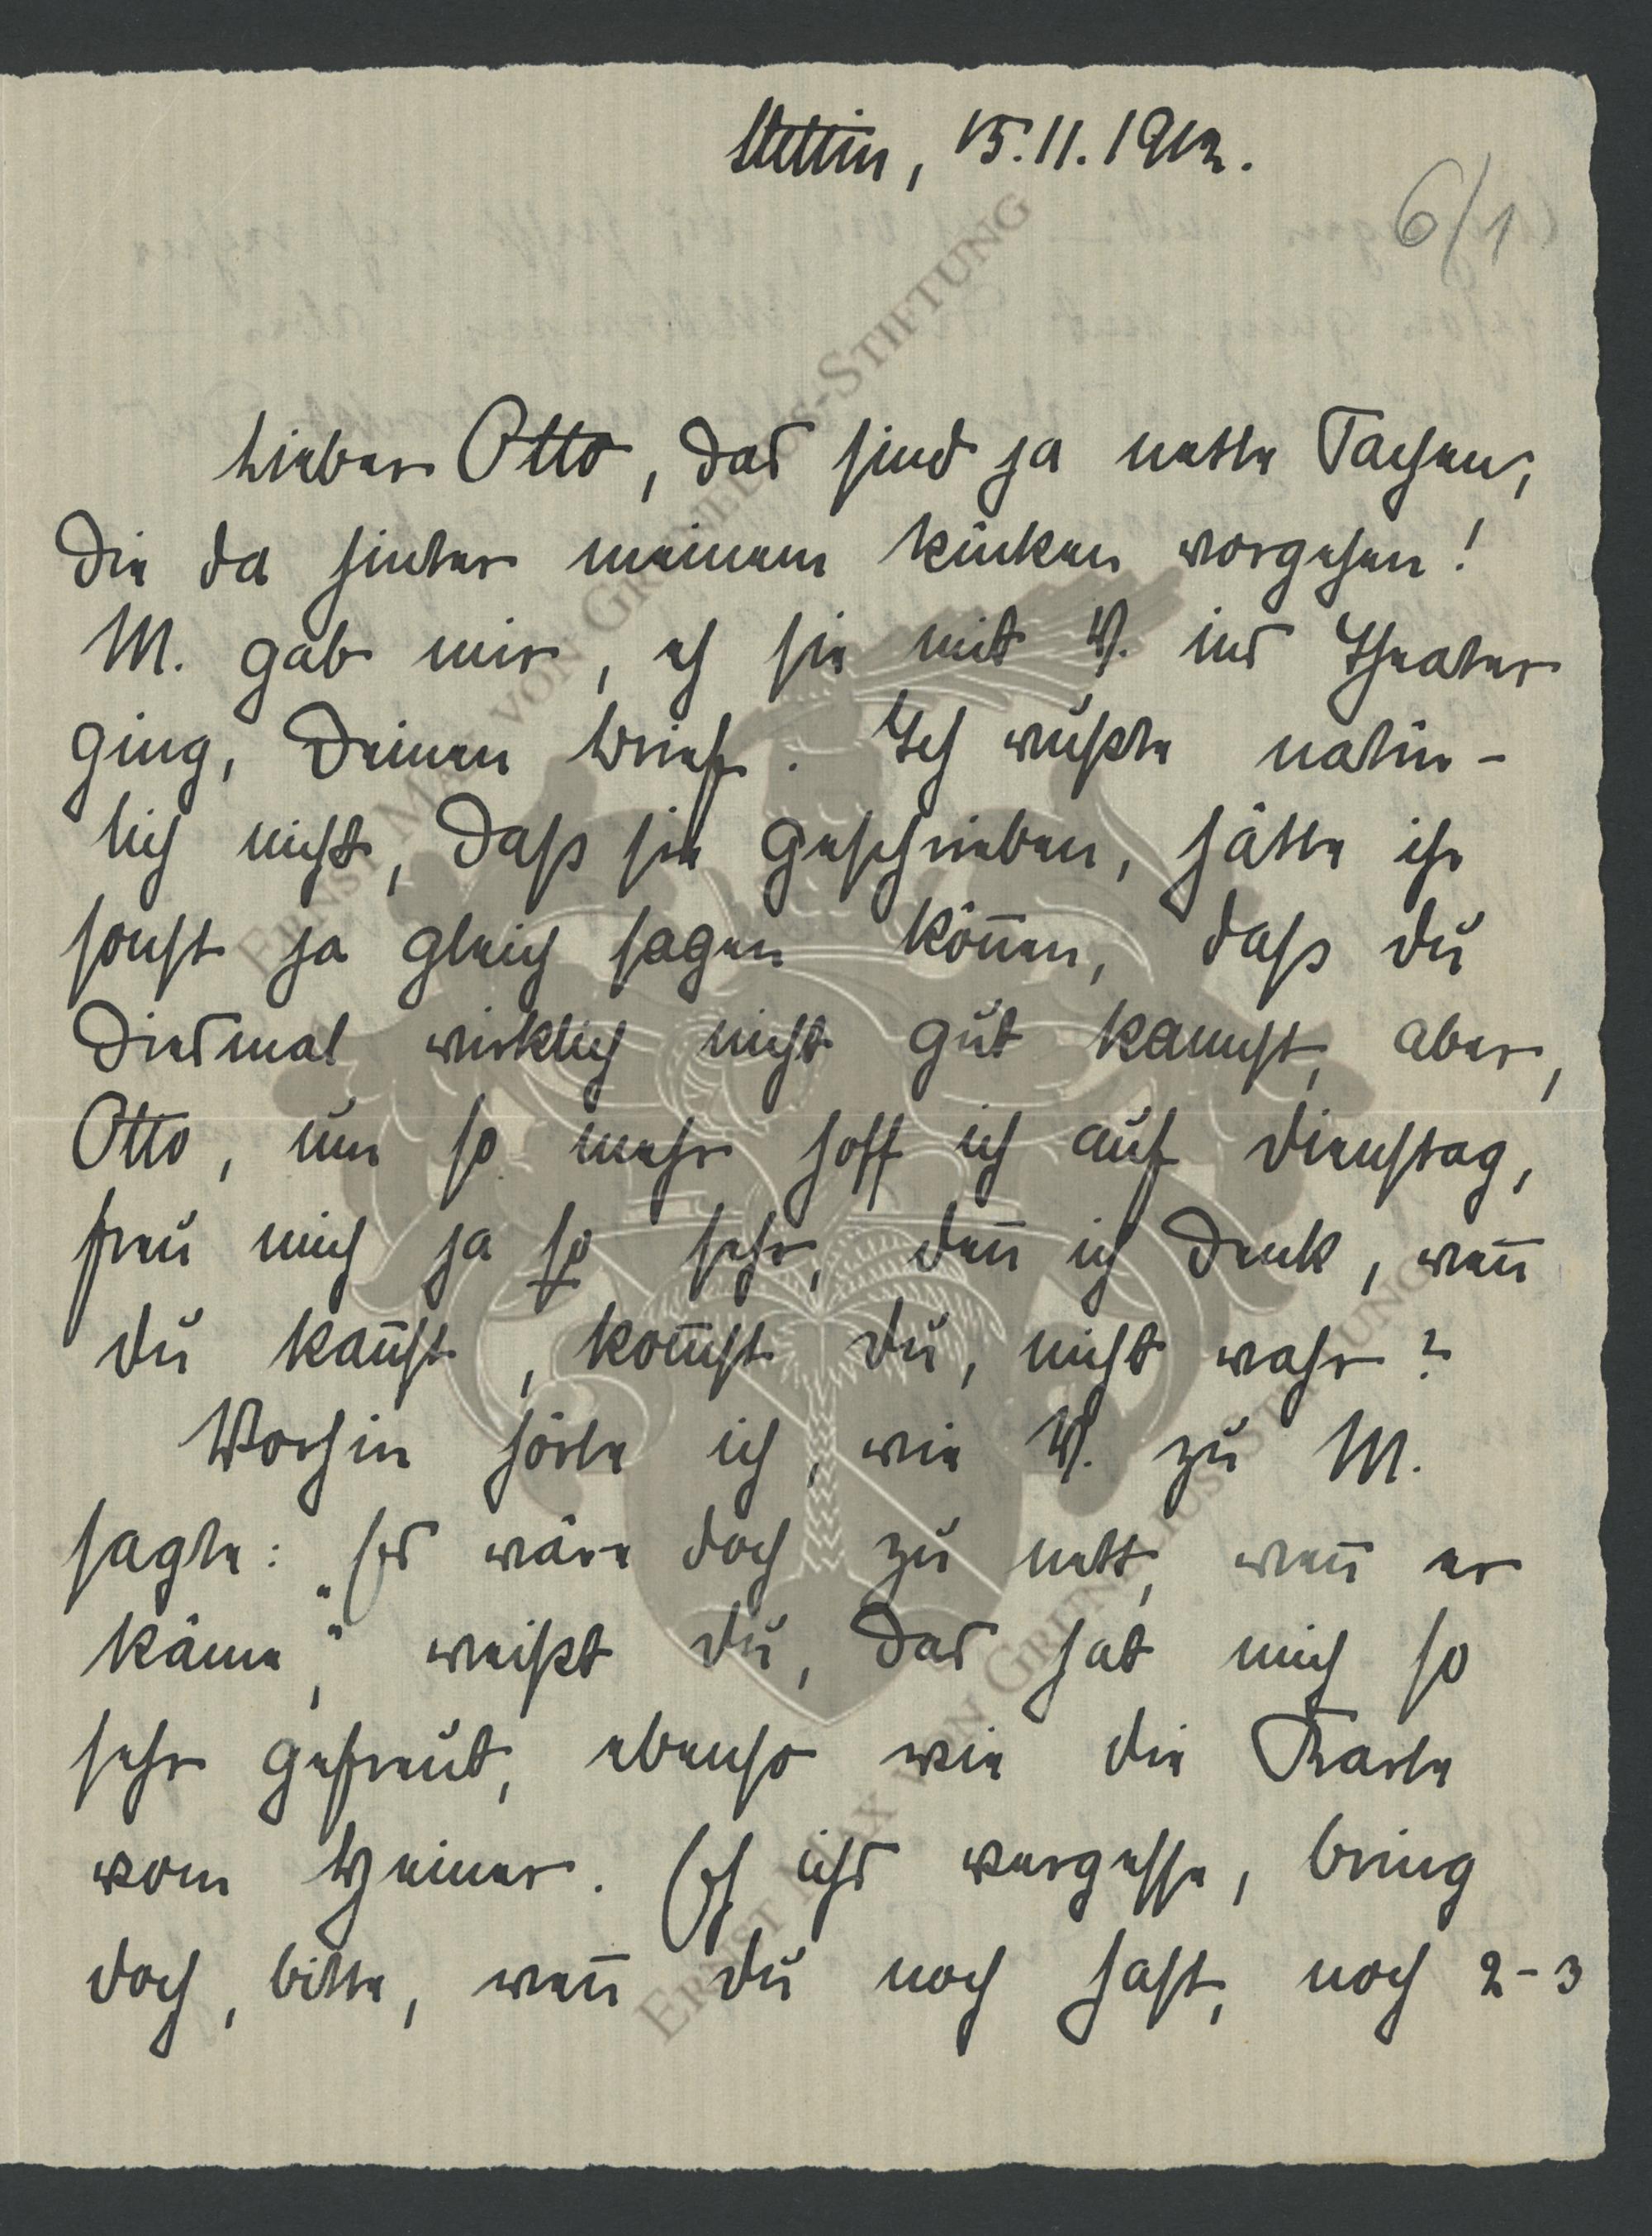 Stettin, 15.11.1912.
6/1
Lieber Otto, das sind ja nette Sachen,
die da hinter meinem Rücken vorgehen!
M. gab mir, eh sie mit V. ins Theater
ging, Deinen Brief. Ich wußte natür-
lich nicht, daß sie geschrieben, hätte ihr
sonst ja gleich sagen können, daß du
diesmal wirklich nicht gut kannst, aber,
Otto, um so mehr hoff ich auf Dienstag,
freu mich ja so sehr, denn ich denk, wenn
du kannst, kommst du, nicht wahr?
Vorhin hörte ich, wie V. zu M.
sagte: „Es wäre doch zu nett, wenn er
käme," weißt du, das hat mich so
sehr gefreut, ebenso wie die Karte
vom Heiner. Eh ichs vergesse, bring
doch, bitte, wenn du noch hast, noch 2-3
ERNST MAX VON GRUNELIUS-STIFTUNG
ERNST MAX VON GRUNELIUS-STIFTUNG